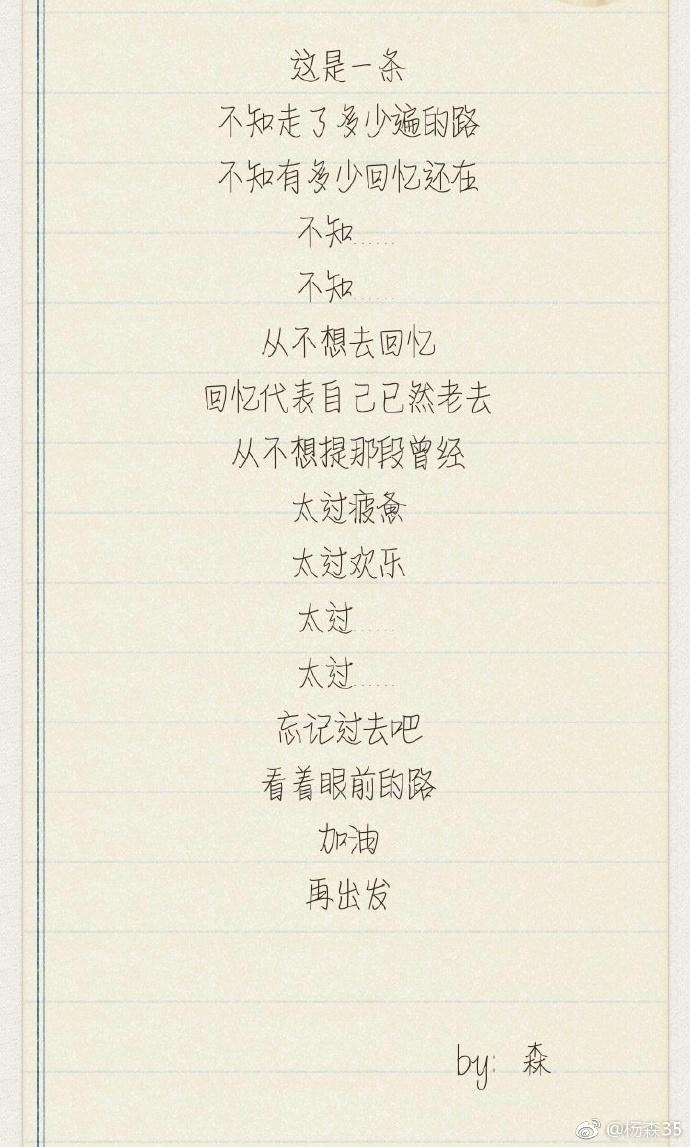 这是一条
不知走了多少遍的路
不知有多少回忆还在
不知……
不知……
从不想去回忆
回忆代表自己已然老去
从不想提那段曾经
太过疲惫
太过欢乐
太过……
太过……
忘记过去吧
看着眼前的路
加油
再出发
by: 森
@杨森35